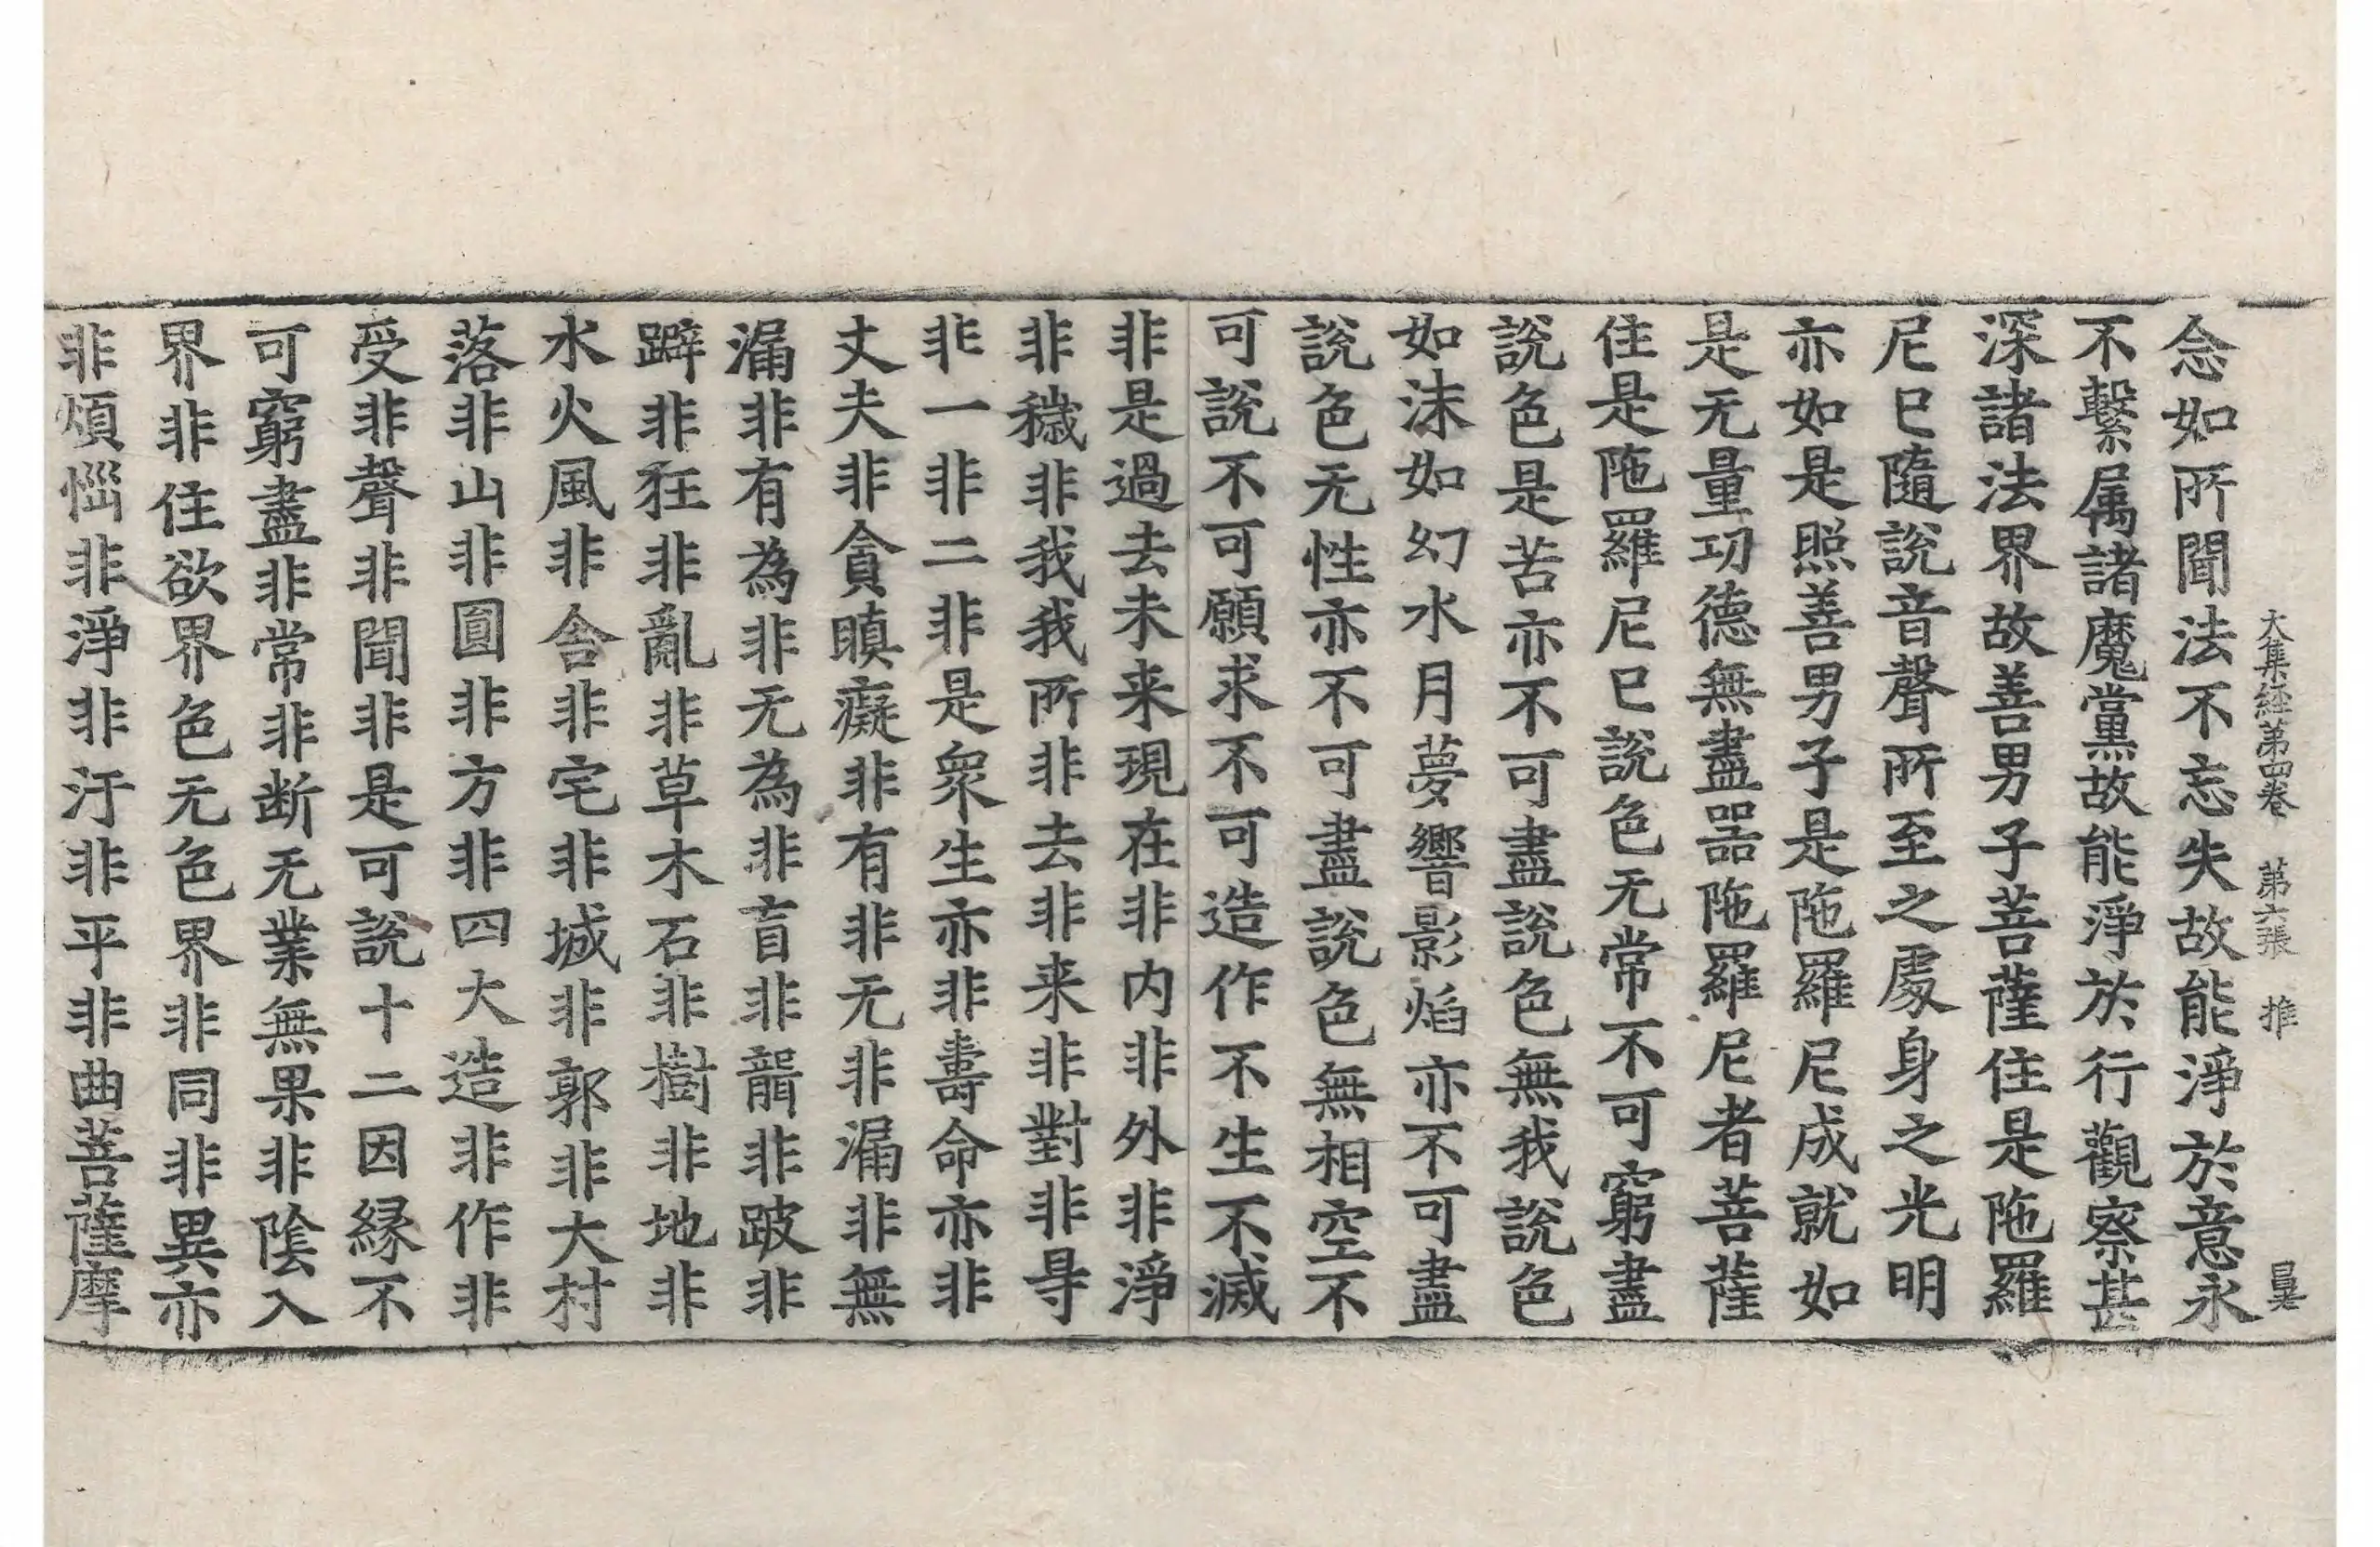 大集経第四巻 第六張 推
念如所聞法不忘失故能淨於意永
不繫属諸魔黨故能淨於行觀察甚
深諸法界故善男子菩薩住是陁羅
尼已隨說音聲所至之處身之光明
亦如是照善男子是陁羅尼成就如
是无量功德無盡器陁羅尼者菩薩
住是陁羅尼已說色无常不可窮盡
說色是苦亦不可盡說色無我說色
如沫如幻水月夢響影焰亦不可盡
說色无性亦不可盡說色無相空不
可說不可願求不可造作不生不滅
非是過去未来現在非内非外非淨
非穢非我我所非去非来非對非㝵
非一非二非是衆生亦非壽命亦非
丈夫非貪瞋癡非有非无非漏非無
漏非有為非无為非盲非聾非跛非
躃非狂非亂非草木石非樹非地非
水火風非舍非宅非城非郭非大村
落非山非圓非方非四大造非作非
受非聲非聞非是可說十二因縁不
可窮盡非常非断无業無果非陰入
界非住欲界色无色界非同非異亦
非煩惱非淨非汙非平非曲菩薩摩